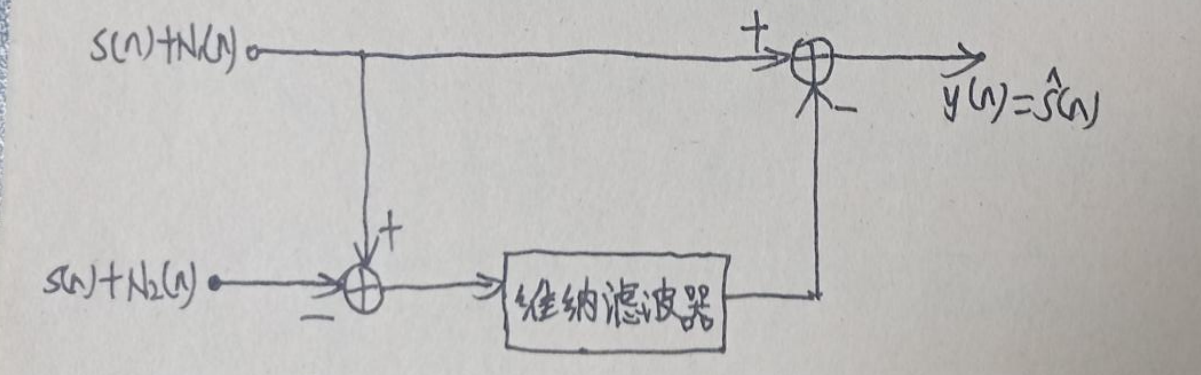 S(n)+N1(n)
+
y(n)=ŝ(n)
−
+
S(n)+N2(n)
−
维纳滤波器